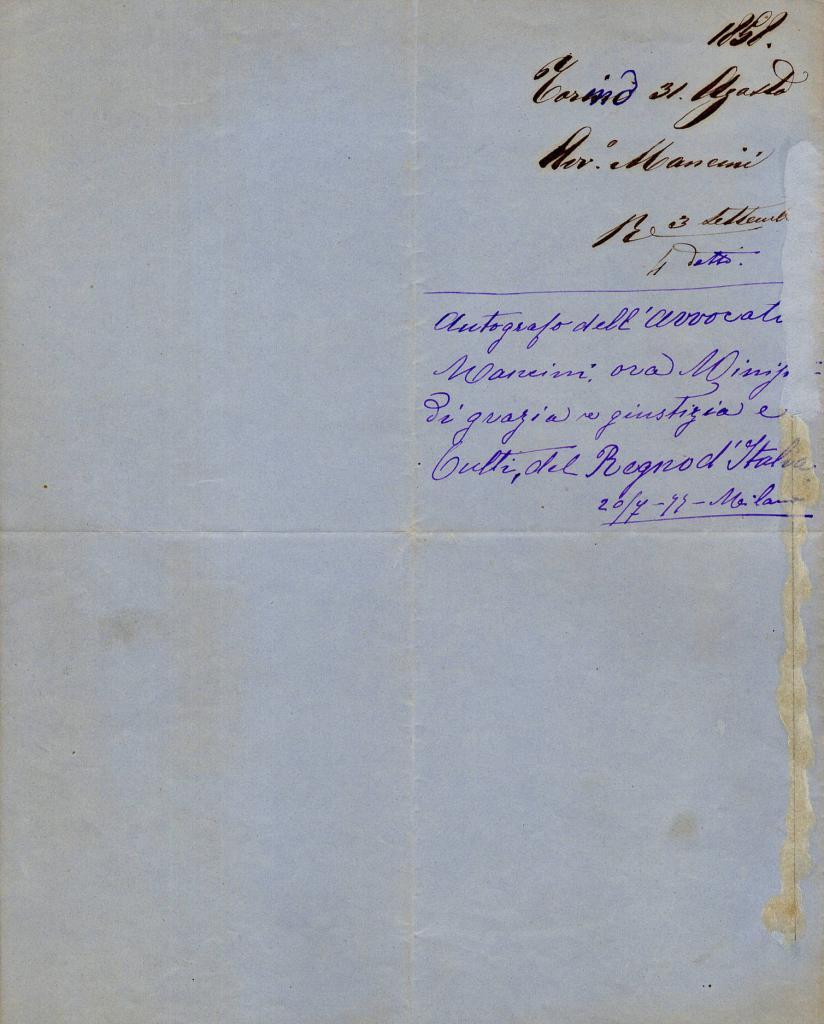 1858.
Torino 31. Agosto
Avv.º Mancini
R 3 Settemb
4 detto.
Autografo dell'Avvocato
Mancini, ora Minis=
di grazia e giustizia e
Culti, del Regno d'Italia.
20/7-77-Milano